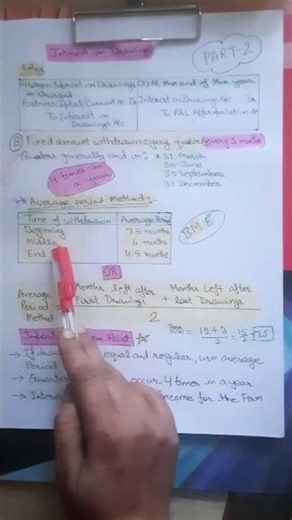 Interest on Drawings
PART-2
Entry
When Interest on Drawings
is charged
(2) At the end of the year
Partners Capital/Current A/c Dr
To Interest on
Drawings A/c
Interest on Drawings A/c Dr
To P&L Appropriation A/c
(B) Fixed amount withdrawn every quarter/every 3 months
Quarters generally end on:- * 31 March
30 June
30 September
31 December
4 times in a year
* Average period Method:-
Time of withdrawn Average Period
Beginning 7.5 months
Middle 6 months
End 4.5 months
B M E
OR
Average Period Method = Months left after First Drawings + Months Left after last Drawings
2
= 12+3 / 2 = 15/2 = 7.5
Important Point
→ If equal and regular, use average
Period
→ occur 4 times in a year.
→ Income for the Firm